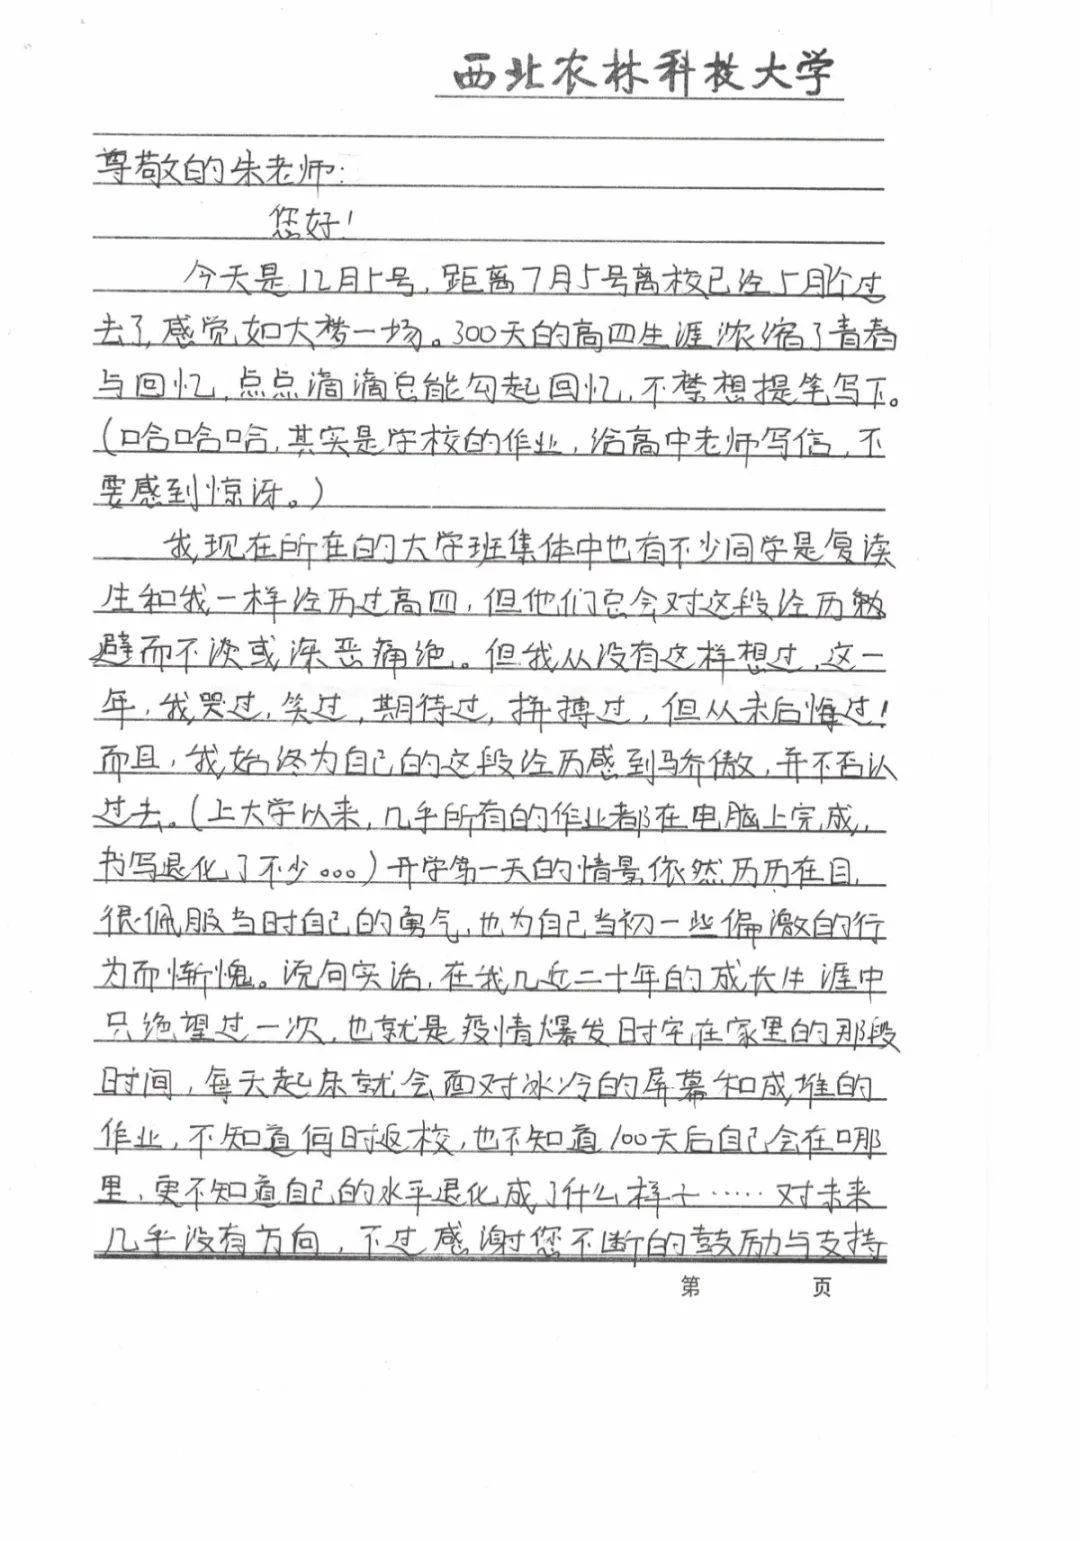 西北农林科技大学
尊敬的朱老师:
您好!
今天是12月5号,距离7月5号离校已经5月个过
去了,感觉如大梦一场。300天的高四生涯浓缩了青春
与回忆,点点滴滴总能勾起回忆,不禁想提笔写下。
(哈哈哈,其实是学校的作业,给高中老师写信,不
要感到惊讶。)
我现在所在的大学班集体中也有不少同学是复读
生和我一样经历过高四,但他们总会对这段经历
避而不谈或深恶痛绝。但我从没有这样想过,这一
年,我哭过,笑过,期待过,拼搏过,但从未后悔过!
而且,我始终为自己的这段经历感到骄傲,并不否认
过去。(上大学以来,几乎所有的作业都在电脑上完成,
书写退化了不少。。。)开学第一天的情景依然历历在目,
很佩服当时自己的勇气,也为自己当初一些偏激的行
为而惭愧。说句实话,在我几近二十年的成长生涯中
只绝望过一次,也就是疫情爆发时宅在家里的那段
时间,每天起床就会面对冰冷的屏幕和成堆的
作业,不知道何时返校,也不知道100天后自己会在哪
里,更不知道自己的水平退化成了什么样子……对未来
几乎没有方向,不过感谢您不断的鼓励与支持
第 页